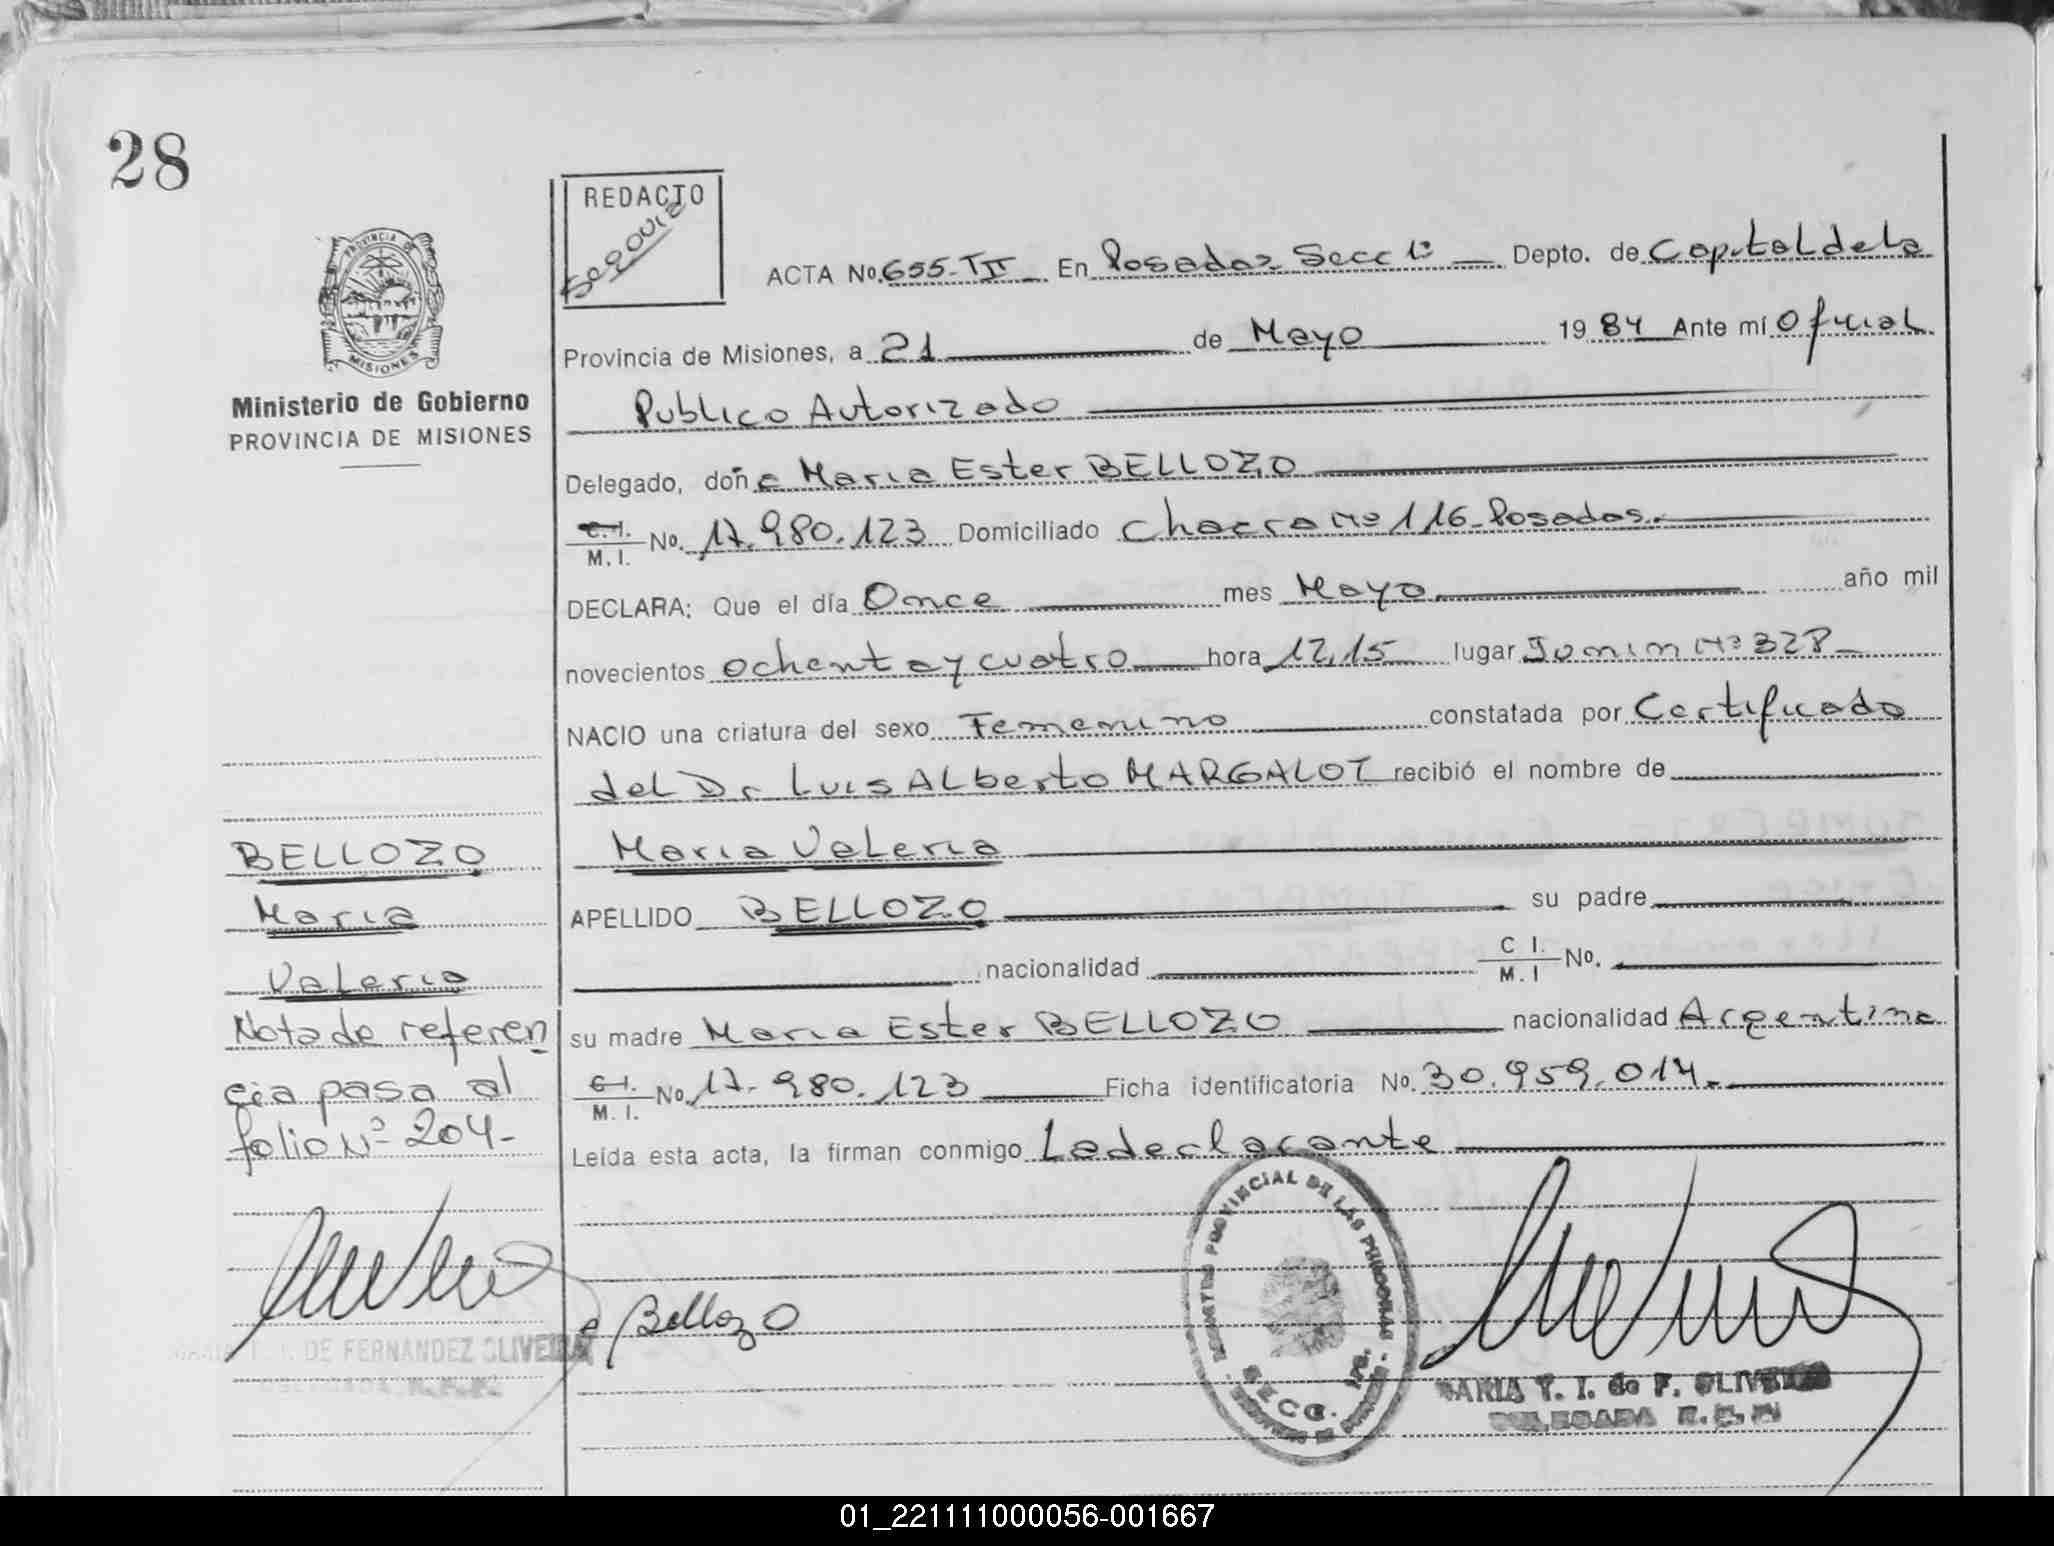 28
REDACTO
Segovia
PROVINCIA DE
MISIONES
Ministerio de Gobierno
PROVINCIA DE MISIONES
ACTA No. 655-TII En Posadas Secc 1ª Depto. de Capital de la
Provincia de Misiones, a 21 de Mayo 1984 Ante mí Oficial
Publico Autorizado
Delegado, doña Maria Ester BELLOZO
C.I. M.I. No. 17.980.123 Domiciliado Chacra Nº 116-Posadas.
DECLARA: Que el día Once mes Mayo año mil
novecientos ochenta y cuatro hora 12,15 lugar Junin Nº 328
NACIO una criatura del sexo Femenino constatada por Certificado
del Dr Luis Alberto MARGALOT recibió el nombre de
Maria Valeria
APELLIDO BELLOZO su padre
nacionalidad C I. M. I No.
su madre Maria Ester BELLOZO nacionalidad Argentina
C.I. M. I. No. 17.980.123 Ficha identificatoria No. 30.959.014.
Leída esta acta, la firman conmigo La declarante
BELLOZO
Maria
Valeria
Nota de referen
cia pasa al
folio Nº 204-
Bellozo
DE FERNANDEZ OLIVEIRA
REGISTRO PROVINCIAL DE LAS PERSONAS
SECC. 1ra.
MARIA T. I. de F. OLIVEIRA
DELEGADA R. P. P.
01_221111000056-001667